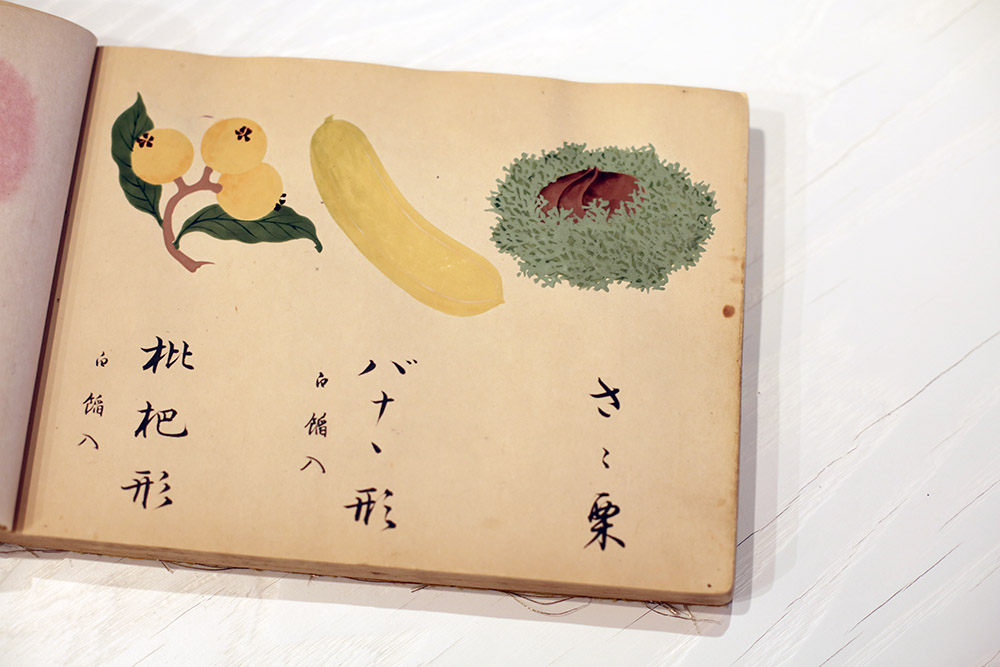 さゝ栗
バナヽ形
白餡入
枇杷形
白餡入